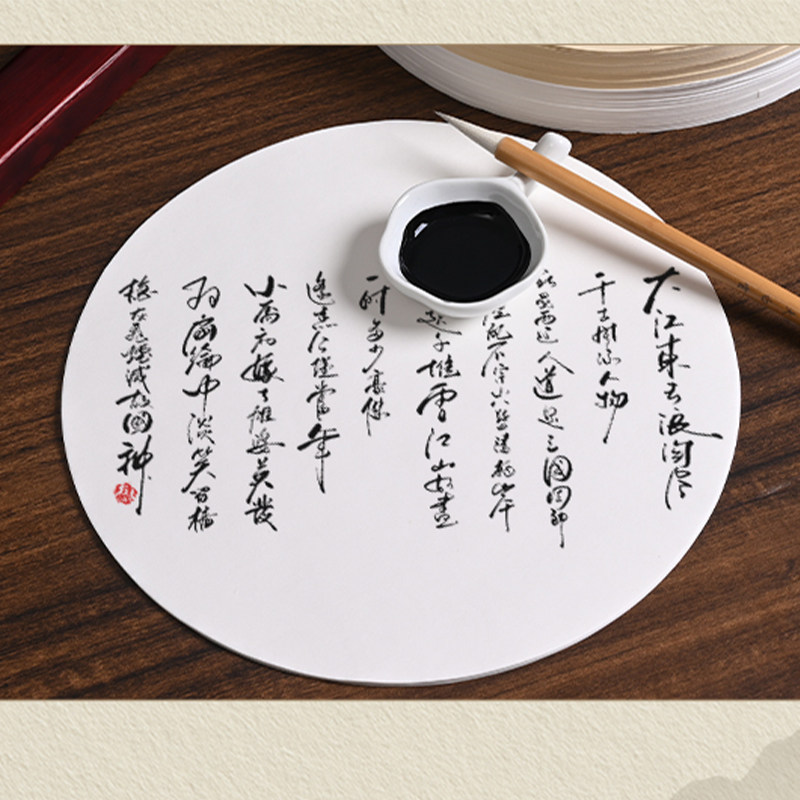 大江東去浪淘尽
千古風流人物
故壘西邊人道是三國周郎
拍岸
起千堆雪江山如畫
一時多少豪傑
遙想公瑾當年
小喬初嫁了雄姿英發
羽扇綸巾淡笑間檣
櫓灰飛煙滅故國神